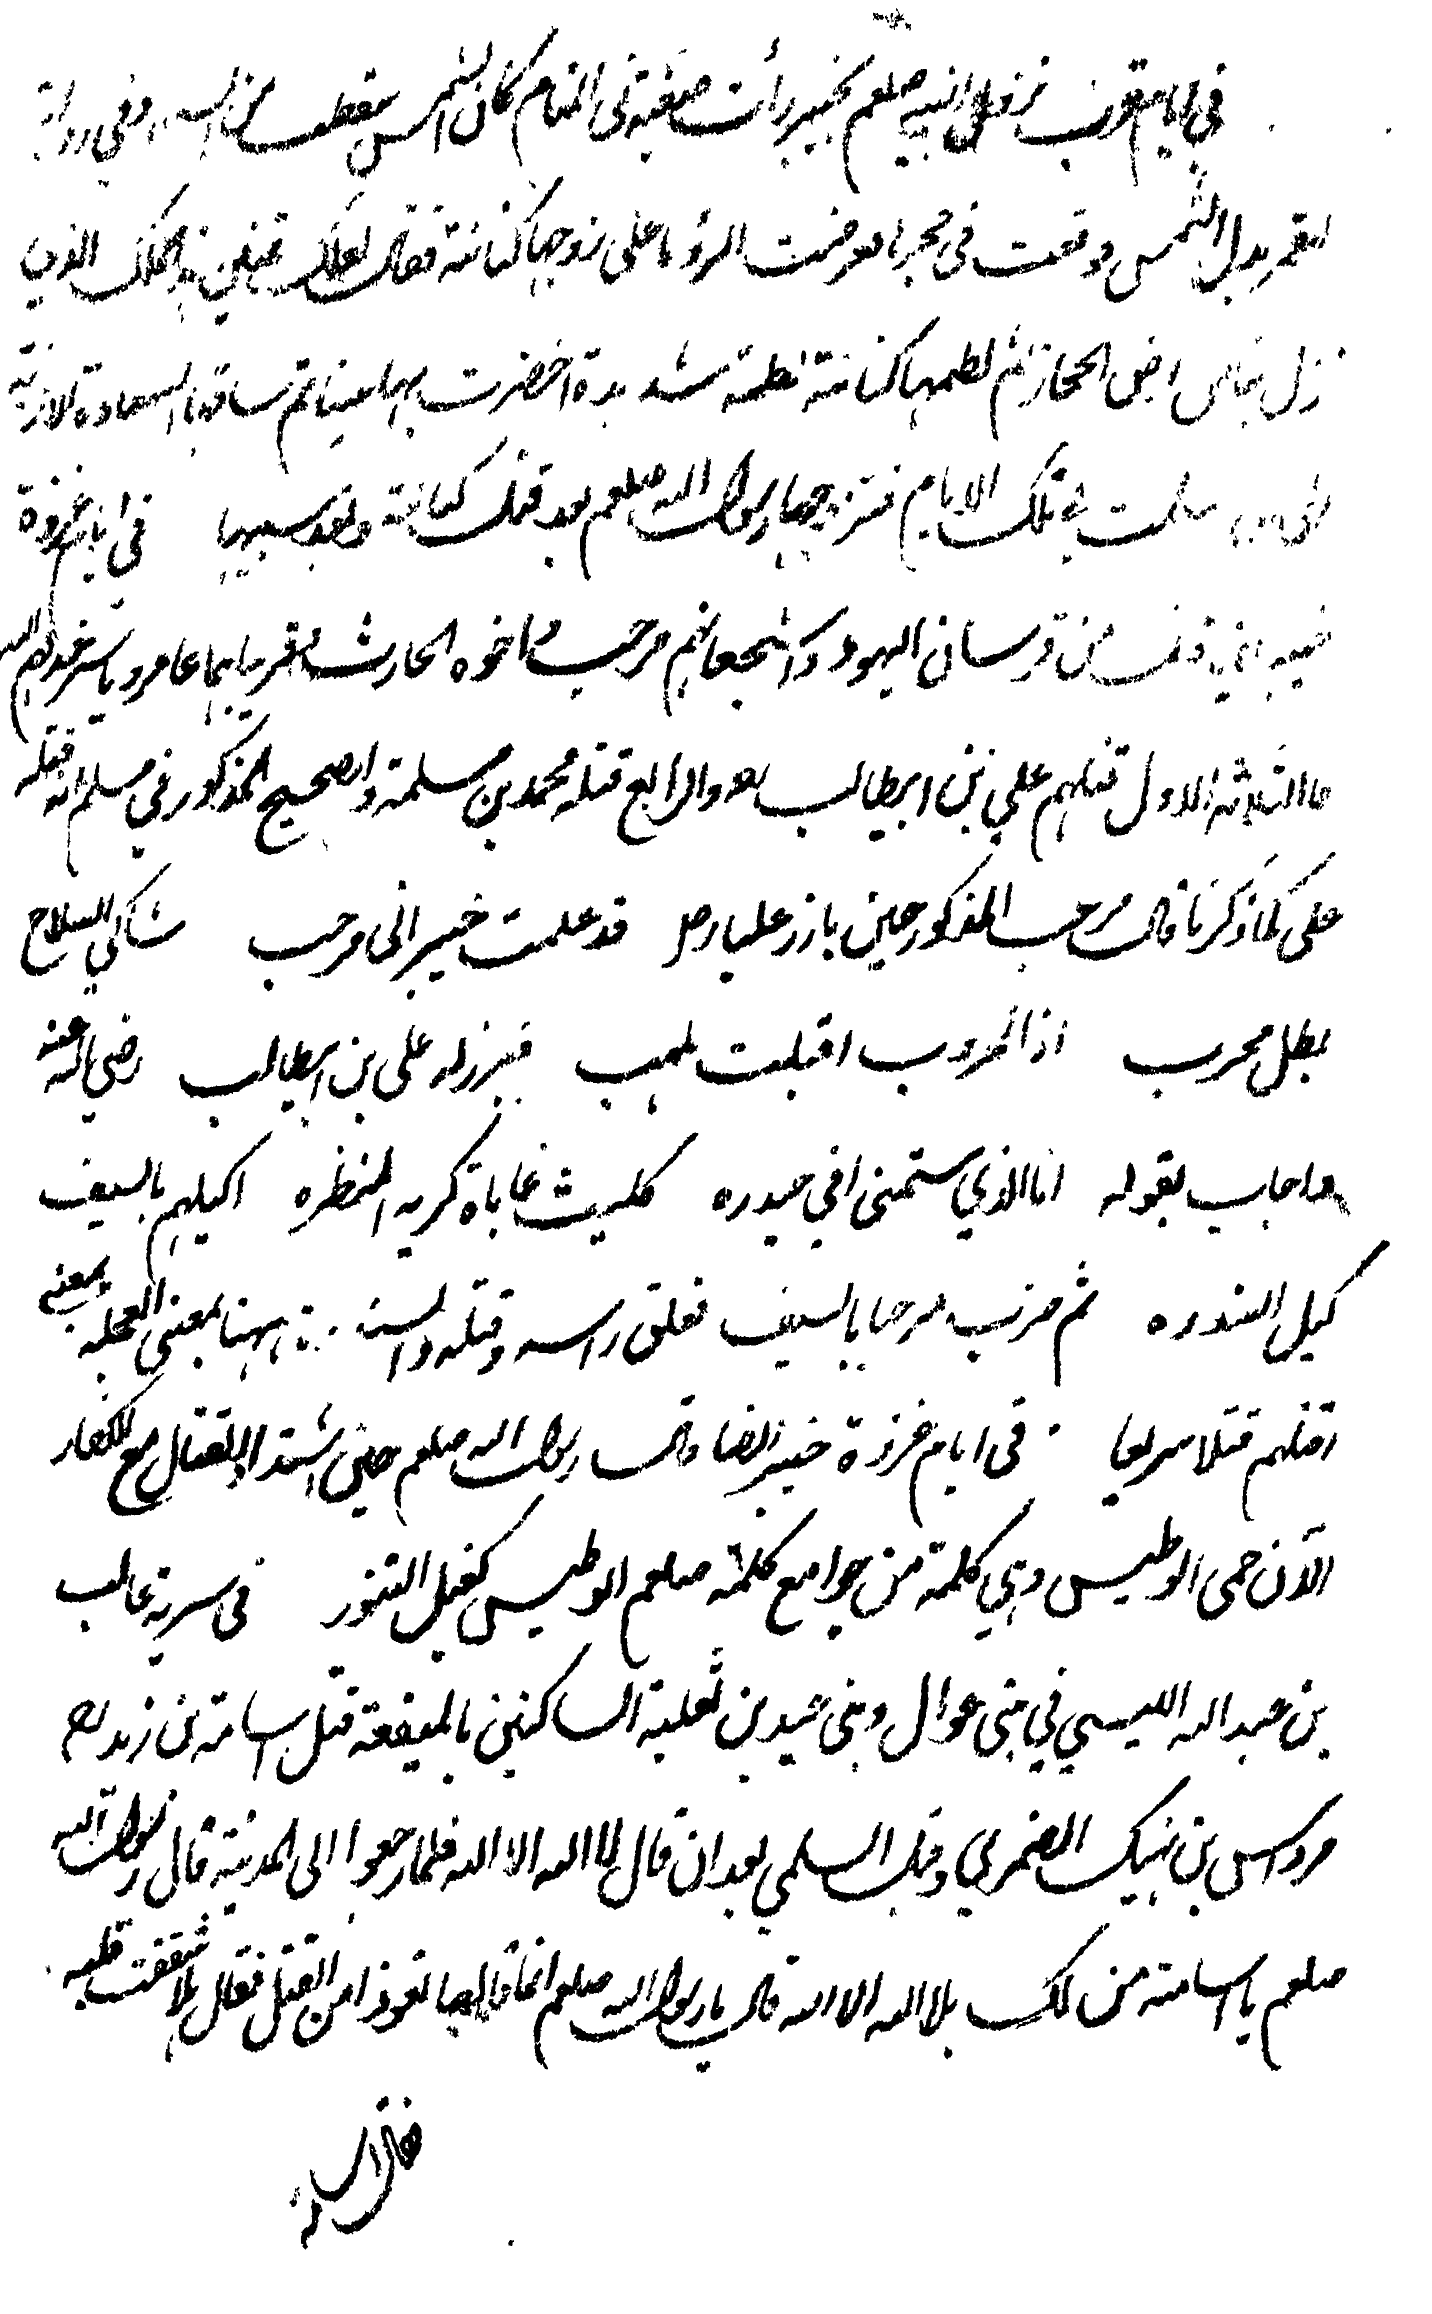 في ايام قرب نزول النبي صلعم بخيبر رأت صفية في المنام كان الشمس سقطت من السماء وفي رواية
القمر بدل الشمس وقعت في حجرها فعرضت الرؤيا على زوجها كنانة فقال لعلك تمنين هذا الملك الذي
نزل بنا من ارض الحجاز ثم لطمها كنانة لطمة شديدة اخضرت بها عينها ثم ساقها السعادة الازلية
الى ان سلمت في تلك الايام فتزوجها رسول الله صلعم بعد قتل كنانة وبعد سبيها في ايام غزوة
خيبر قتل من فرسان اليهود واشجعانهم مرحب واخوه الحارث وقريباهما عامر وياسر
فاالثلاثة الاول قتلهم علي بن ابيطالب رضه والرابع قتله محمد بن مسلمة والصحيح المذكور في مسلم انه قتله
علي كما ذكرنا قال مرحب المذكور حين بارز عليا رضه قد علمت خيبر اني مرحب شاكي السلاح
بطل مجرب اذا الحروب اقبلت تلهب فبرز له علي بن ابيطالب رضي الله عنه
فاجاب بقوله انا الذي سمتني امي حيدره كليث غاباة كريه المنظره اكيلهم بالسيف
كيل السندره ثم ضرب مرحبا بالسيف ففلق راسه وقتله والسندرة ههنا بمعنى العجله بمعنى
اقتلهم قتلا سريعا في ايام غزوة خيبر ايضا قال رسول الله صلعم حين اشتد القتال مع الكفار
الآن حمى الوطيس وهي كلمة من جوامع كلمه صلعم الوطيس كفيل التنور في سرية غالب
بن عبد الله الليسي في بني عوال وبني عبد بن ثعلبة الساكنين بالميفعة قتل اسامة بن زيد رضه
مرداس بن نهيك الضمري وقيل السلمي بعد ان قال لا اله الا الله فلما رجعوا الى المدينة قال رسول الله
صلعم يا اسامة من لك بلا اله الا الله قال يا رسول الله صلعم انما قالها تعوذا من القتل فقال هلا شققت قلبه